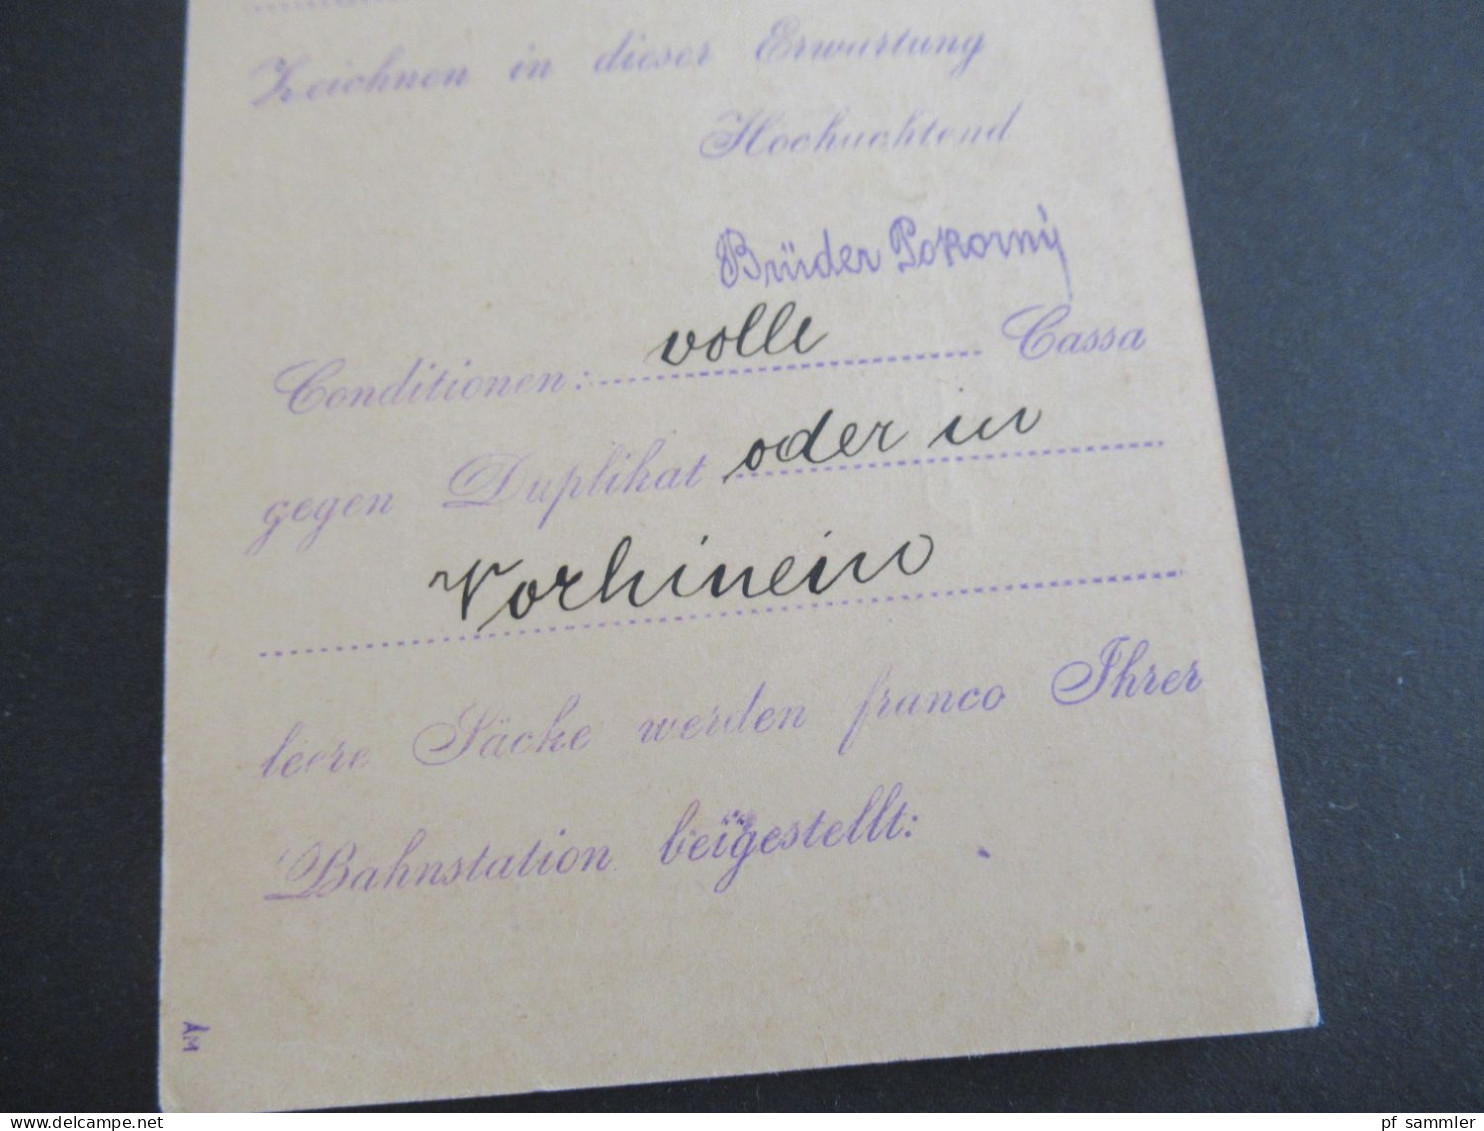 Zeichnen in dieser Erwartung
Hochachtend
Brüder Pokorný
Conditionen: volle Cassa
gegen Duplikat oder in
Vorhinein
leere Säcke werden franco Ihrer
Bahnstation beigestellt:
AM
www.delcampe.net
pf_sammler